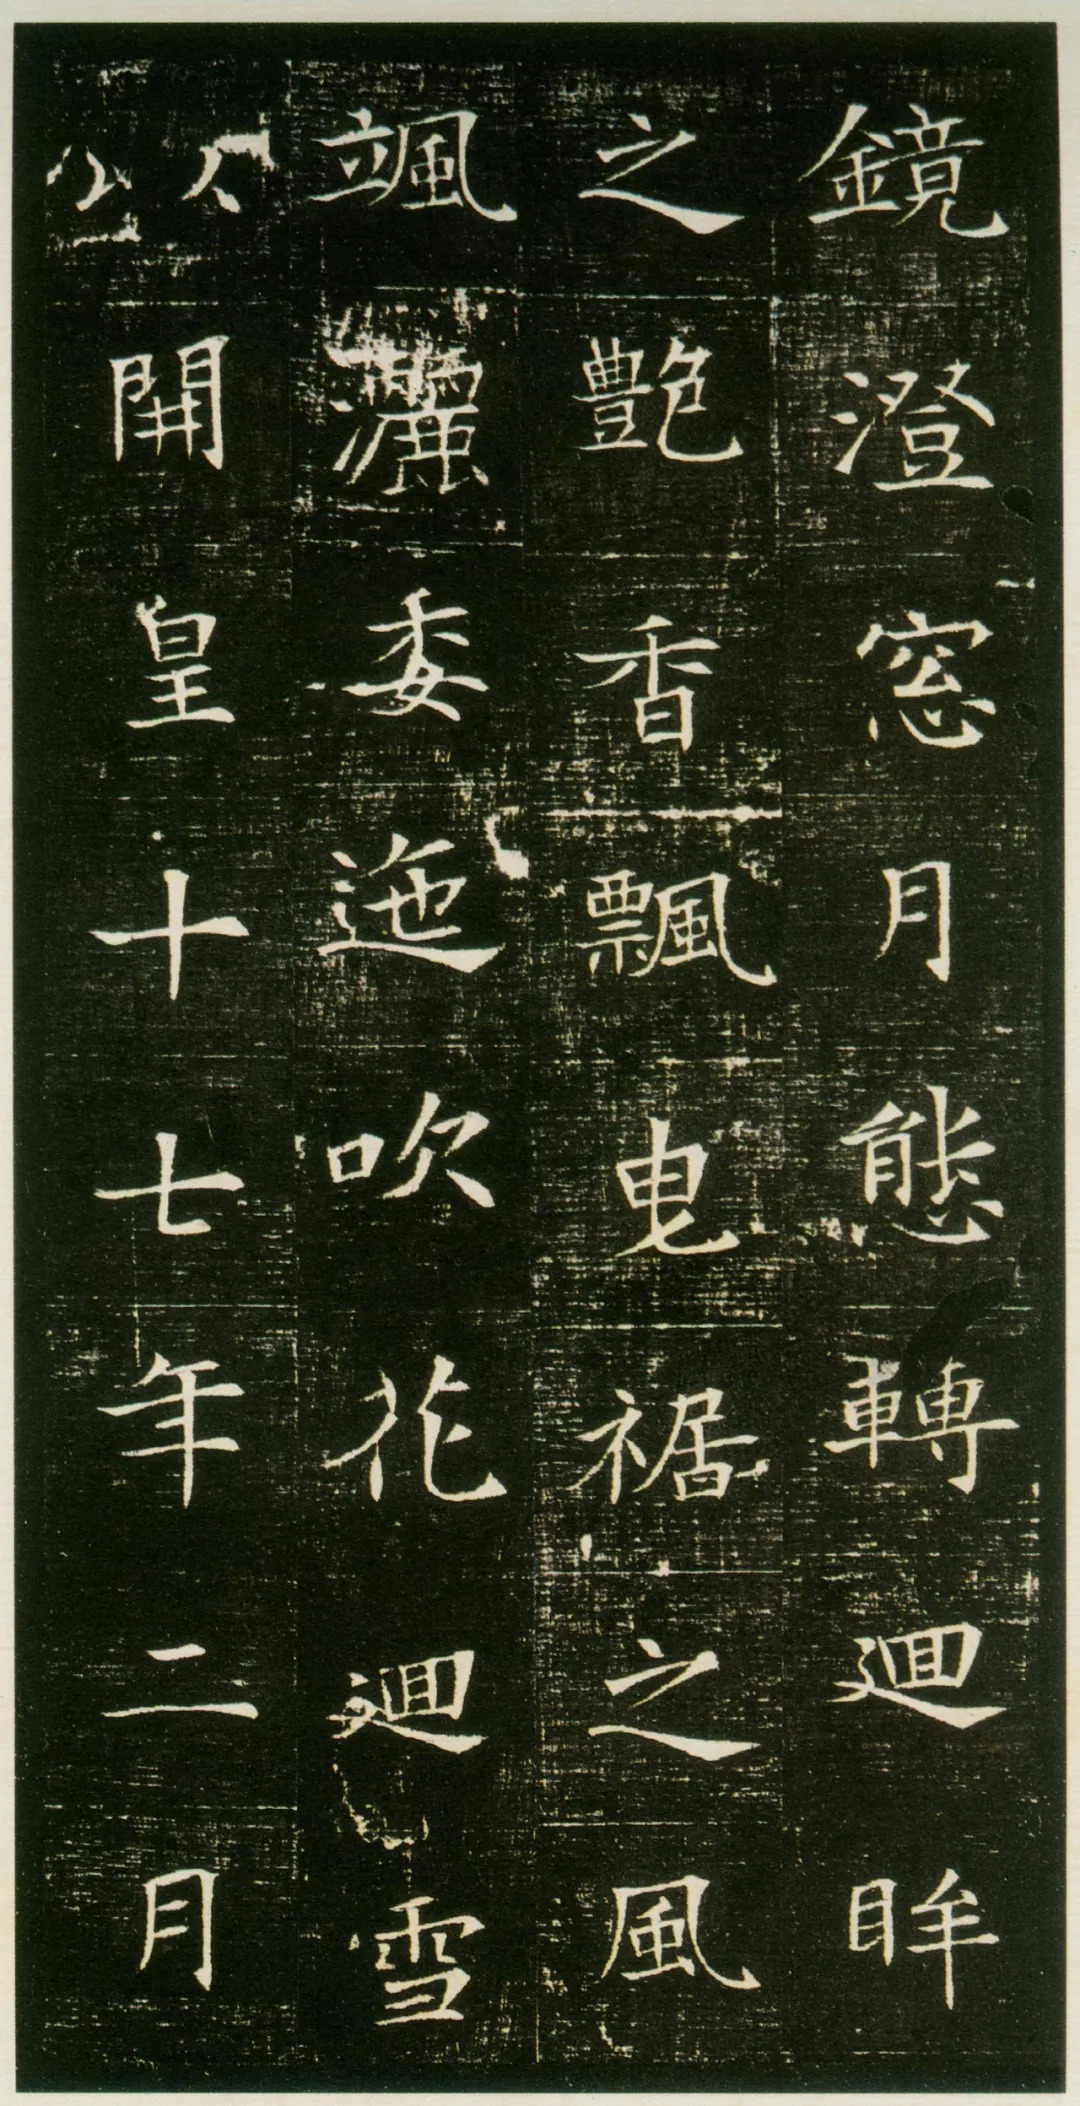 鏡澄窓月態轉迴眸
之艷香飄曳裾之風
颯灑委迤吹花迴雪
以開皇十七年二月